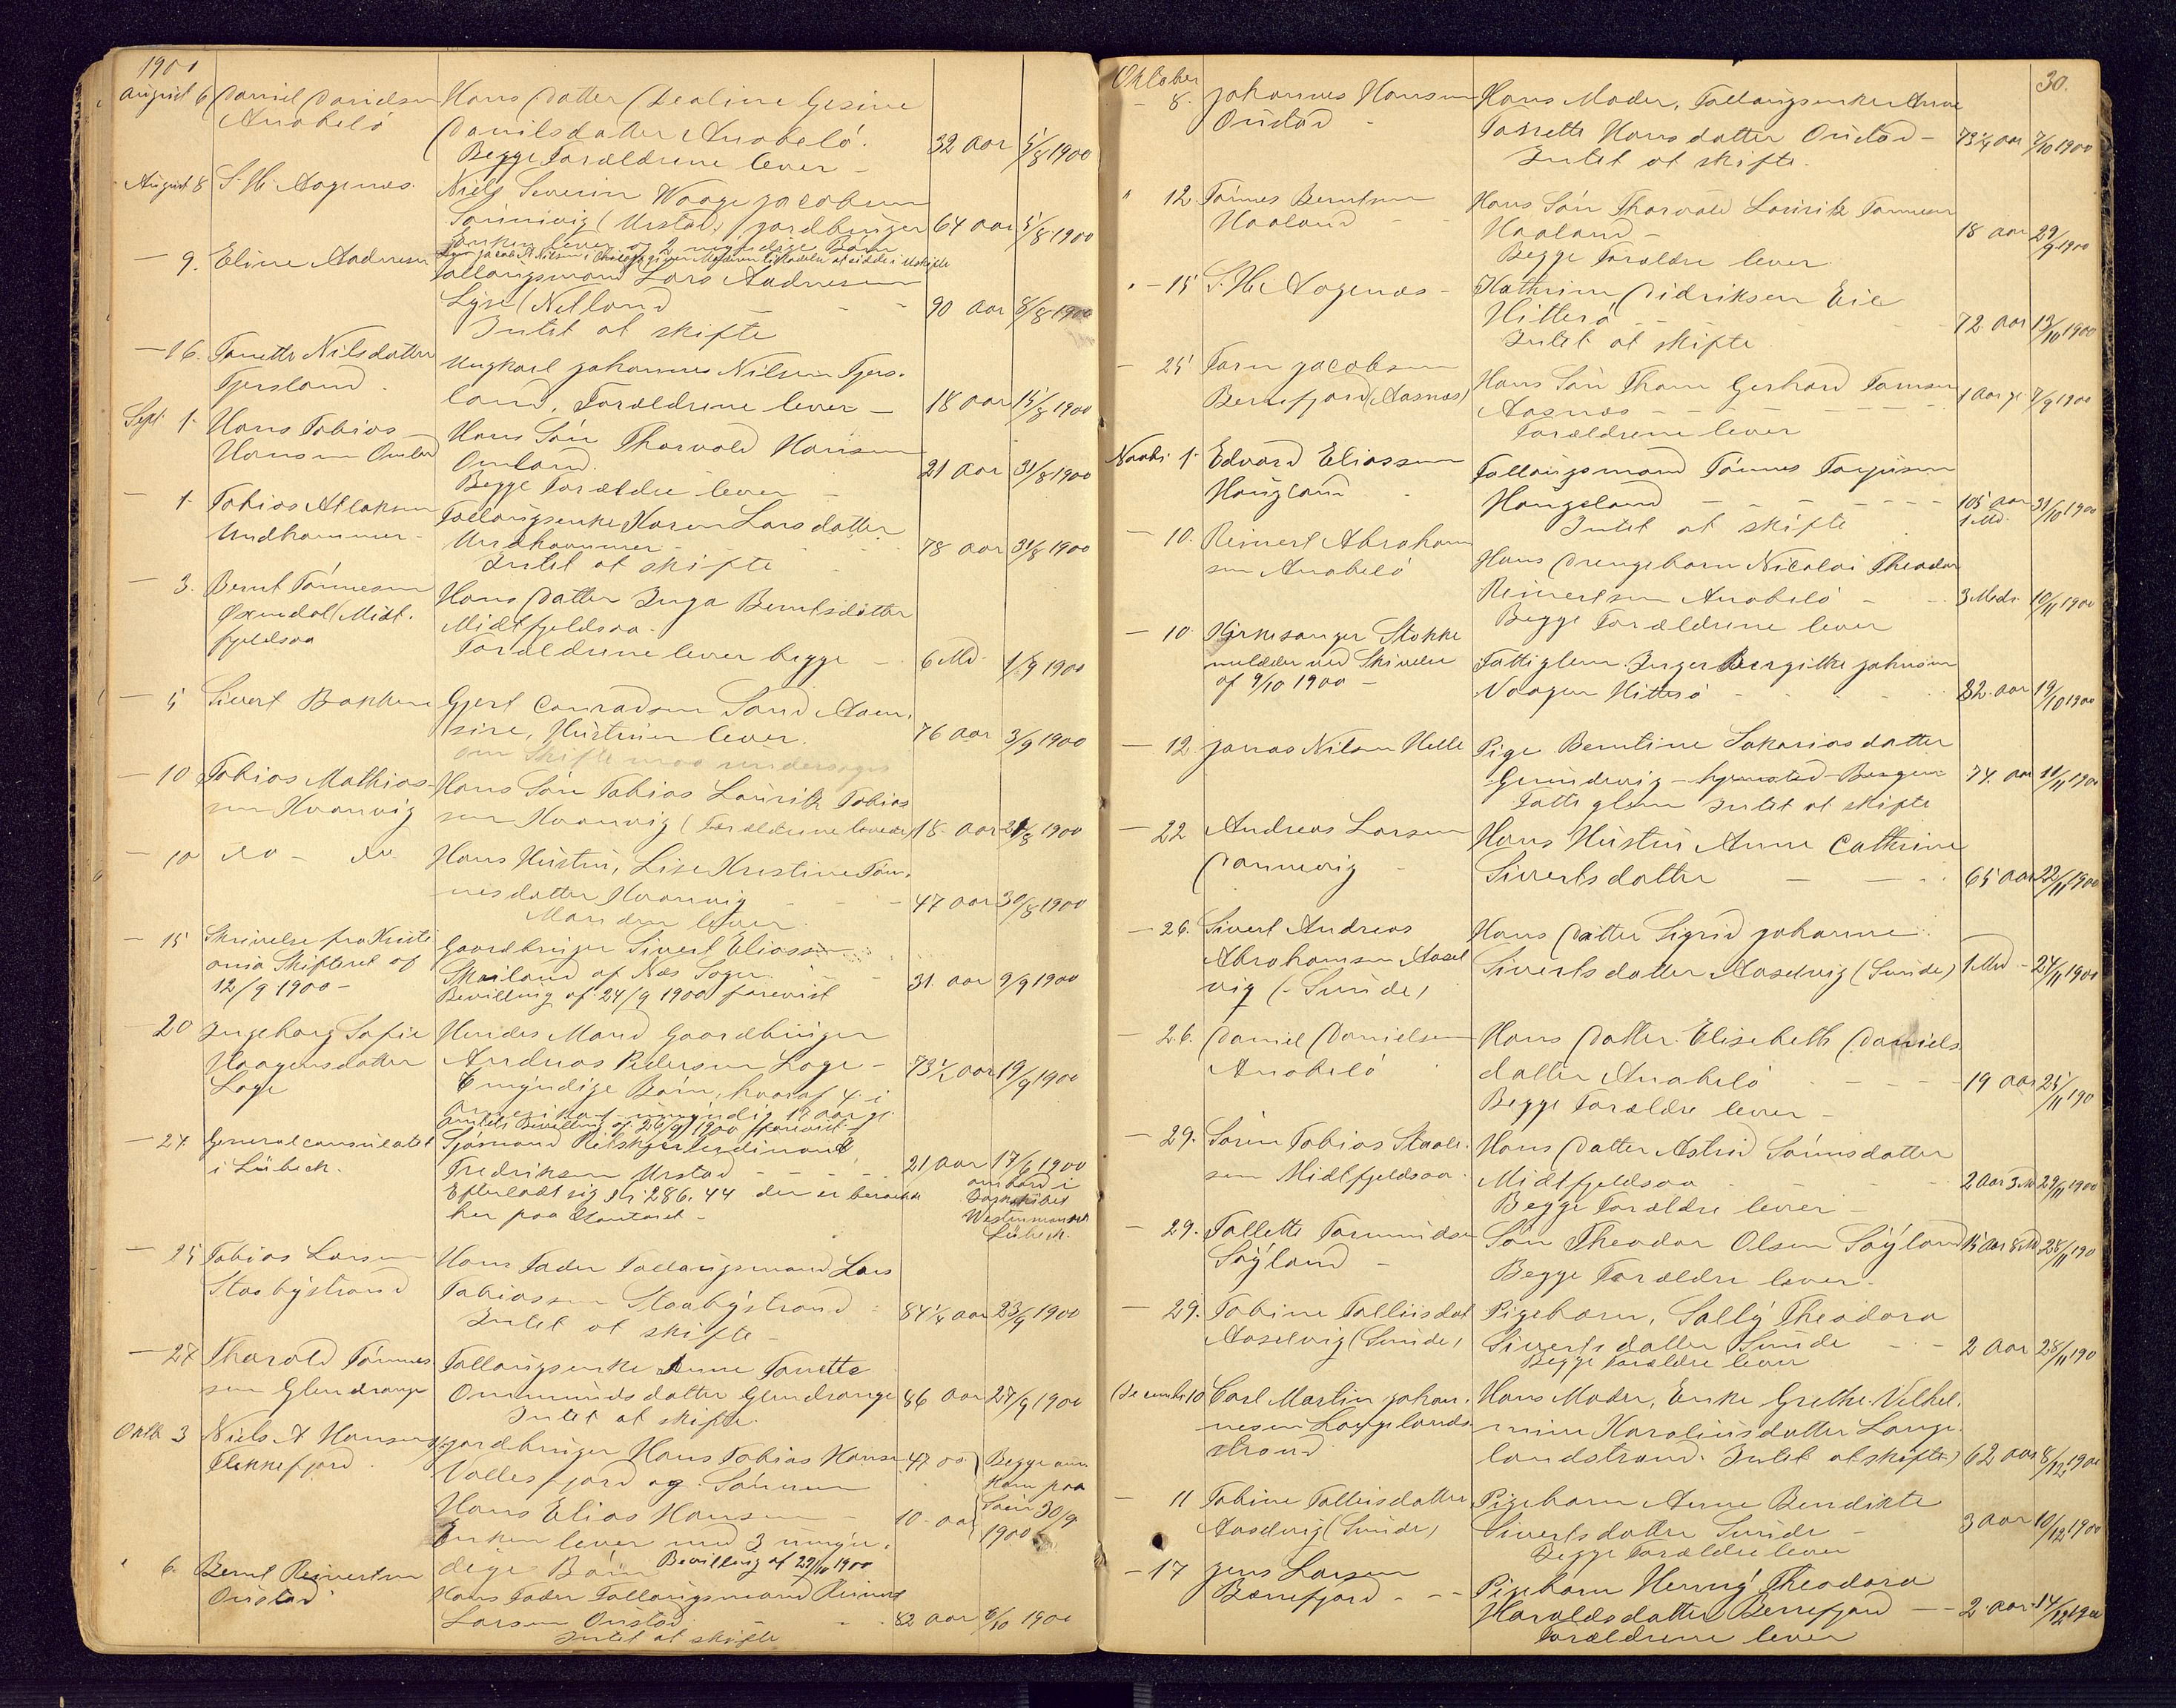 1900
August 6 Daniel Danielsen Hans Datter Dealine Gesine
Anabelö Danilsdatter Anabelö. 32 Aar 5/8 1900
Begge Forældrene lever -
August 8 S. H. Aagenæs. Niels Severin Waage Jacobsen
Sønnivig (Urstad) Jordbruger 64 Aar 5/8 1900
Enken lever og 2 myndige Børn
- 9. Eline Aadnesen Follaugsmand Lars Aadnesen
Lyse (Netland - 90 Aar 8/8 1900
Intet at skifte
- 16. Tonette Nilsdatter Ungkarl Johannes Nilsen Fjers-
Fjersland. land, Forældrene lever - 18 Aar 15/8 1900
Sept 1. Hans Tobias Hans Sön Thorvald Hansen
Hansen Omland Omland. 21 Aar 31/8 1900
Begge Forældre lever -
- 1. Tobias Atlaksen Follaugsenke Karen Larsdatter
Undhammer - Undhammer - 78 Aar 31/8 1900
Intet at skifte
- 3. Bernt Tönnesen Hans Datter Inga Berntsdatter
Øxendal (Midt- Midtfjeldsaa.
fjeldsaa Forældrene lever begge - 6 Md. 1/9 1900
- 5 Sivert Bakkene Gjert Conradsen Sand Aaen-
sire, Hustruen lever. 76 Aar 3/9 1900
om Skifte maa undersøges
- 10 Tobias Mathias- Hans Sön Tobias Lauritz Tobias
sen Kvanvig sen Kvanvig (Forældrene levede) 18 Aar 29/8 1900
- 10 do - do. Hans Hustru, Lise Kristine Tön-
nesdatter Kvanvig - 47 Aar 30/8 1900
Manden lever
- 15 Skrivelse fra Kristi Gaardbruger Sivert Eliassen
ania Skifteret af Skailand af Næs Sogn - 31 Aar 9/9 1900
12/9 1900 - Bevilling af 24/9 1900 forevist
- 20 Ingeborg Sofie Hendes Mand Gaardbruger
Haagensdatter Andreas Pedersen Loge - 73½ Aar 19/9 1900
Loge 6 myndige Börn, hvoraf 4 i
Amerika, 1 umyndig 17 aar gl.
Amtets Bevilling af 26/9 1900 forevist
- 24 Generalconsulatet Sjömand Ferdinand
i Lübeck. Fredriksen Urstad - 21 Aar 17/6 1900
Efterladt sig Kr 286.44 der er beroende ombord i
her paa Kontoret -
Lübeck.
- 25 Tobias Larsen Hans Fader Follaugsmand Lars
Staabystrand Tobiassen Staabystrand - 84¼ Aar 23/9 1900
Intet at skifte -
- 27 Tharald Tönnes Follaugsenke Anne Tonette
sen Glendrange Ommundsdatter Glendrange 86 Aar 27/9 1900
Intet at skifte.
Oktb 3 Niels A Hansen Jordbruger Hans Tobias Hansen 47 aar Begge om
Flekkefjord. Vollesfjord og Sönnen kom paa
Hans Elias Hansen - 10 aar Söen 30/9
Enken lever med 3 umyn- 1900
dige Börn Bevilling af 29/10 1900
" 6. Bernt Reinertsen Hans Fader Follaugsmand Reinert
Oustad Larsen Oustad - 82 Aar 6/10 1900
Intet at skifte
30.
Oktober
- 8. Johannes Hansen Hans Moder, Follaugsenke Anne
Oustad - Tonette Hansdatter Oustad - 73¼ Aar 7/10 1900
Intet at skifte.
" 12 Tönnes Berntsen Hans Sön Thorvald Lauritz Tönnesen
Haaland - Haaland - 18 Aar 29/9 1900
Begge Forældre lever.
" - 15 S. H. Aagenæs - Kathrine Didriksen Eie
Hitterö - 72 Aar 13/10 1900
Intet at skifte.
- 25 Tarn Jacobsen Hans Sön Thom Gerhard Tomsen
Berrefjord (Aasnæs) Aasnæs - 1 Aar gl 7/9 1900
Forældrene lever
Novbr 1 Edvard Eliassen Follaugsmand Tönnes Torjusen
Haugland - Haugeland - 105 Aar 1 Md. 31/10 1900
Intet at skifte
- 10. Reinert Abraham Hans Drengebarn Nicolai Theodor
sen Anabelö Reinertsen Anabelö - 3 Mdr. 10/11 1900
Begge Forældrene lever
- 10 Kirkesanger Stokke
melder ved Skrivelse Fattiglem Inger Birgitte Johnsen
af 9/10 1900 - Vaagen Hitterö - 82 Aar 19/10 1900
- 12 Jonas Nilsen Helle Pige Berntine Sakariasdatter
Grundevig - hjemsted Bergen 74 Aar 11/11 1900
Fattiglem Intet at skifte
- 22 Andreas Larsen Hans Hustru Anne Cathrine
Dannevig - Sivertsdatter - 65 Aar 22/11 1900
- 26. Sivert Andreas Hans Datter Sigrid Johanne
Abrahamsen Aasel Sivertsdatter Aaselvig (Sunde) 1 Md - 24/11 1900
vig (Sunde)
- 26. Daniel Danielsen Hans Datter Elisebeth Daniels
Anabelö datter Anabelö - 19 Aar 25/11 190
Begge Forældre lever -
- 29. Sören Tobias Staale- Hans Datter Astrid Sörensdatter
sen Midtfjeldsaa Midtfjeldsaa - 2 Aar 3 M 29/11 1900
Begge Forældre lever -
- 29. Tollette Tormundsen Sön Theodor Olsen Söyland 15 Aar 8 Md 28/11 190
Söyland - Begge Forældre lever.
- 29. Tobine Tolleisdat Pigebarn, Sally Theodora
Aaselvig (Sunde) Sivertsdatter Sunde - 2 Aar 28/11 190
Begge Forældre lever
December 10 Carl Martin Johan- Hans Moder, Enke Grethe Vilhel-
nesen Langelands- mine Karoliusdatter Lange
strand landstrand. Intet at skifte) 62 Aar 8/12 1900
- 11 Tobine Tolleisdatter Pigebarn Anne Bendikte
Aaselvig (Sunde) Sivertsdatter Sunde - 3 Aar 10/12 1900
Begge Forældre lever
- 17 Jens Larsen Pigebarn Henny Theodora
Berrefjord - Haraldsdatter Berrefjord - 2 Aar 14/12 1900
Forældrene lever